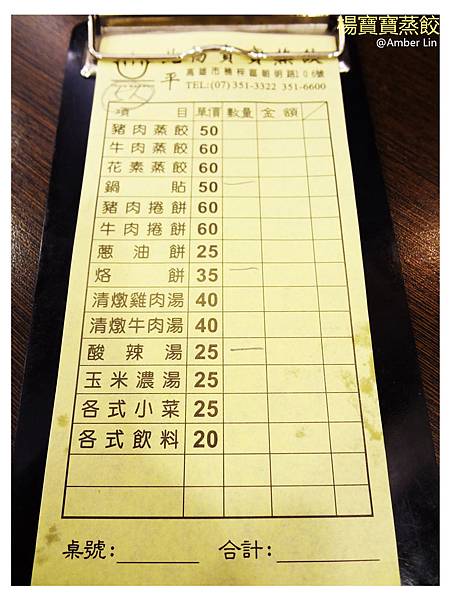 楊寶寶蒸餃
@Amber Lin
寶寶蒸餃
平 高雄市楠梓區朝明路106號
TEL:(07)351-3322 351-6600
項目 單價 數量 金額
豬肉蒸餃 50
牛肉蒸餃 60
花素蒸餃 60
鍋貼 50 一
豬肉捲餅 60
牛肉捲餅 60
蔥油餅 25
烙餅 35 一
清燉雞肉湯 40
清燉牛肉湯 40
酸辣湯 25 一
玉米濃湯 25
各式小菜 25
各式飲料 20
桌號: 合計: